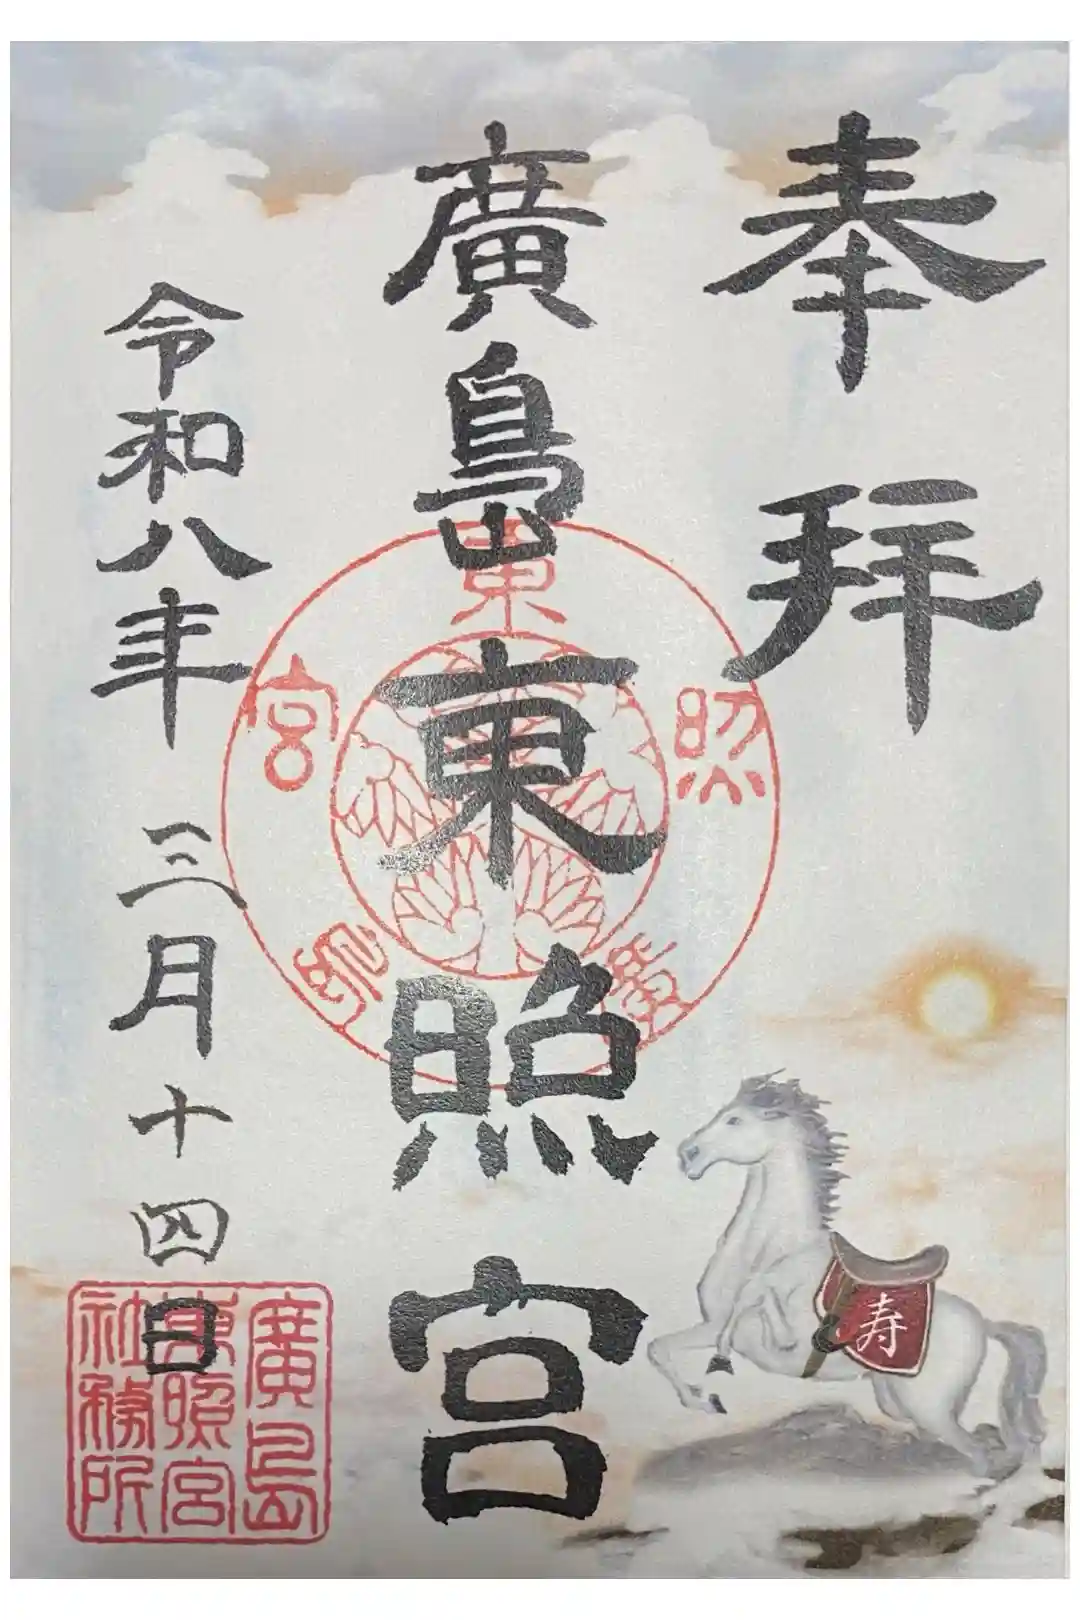 奉拝
廣島東照宮
令和八年三月十四日
寿
東照宮廣島
廣島東照宮社務所